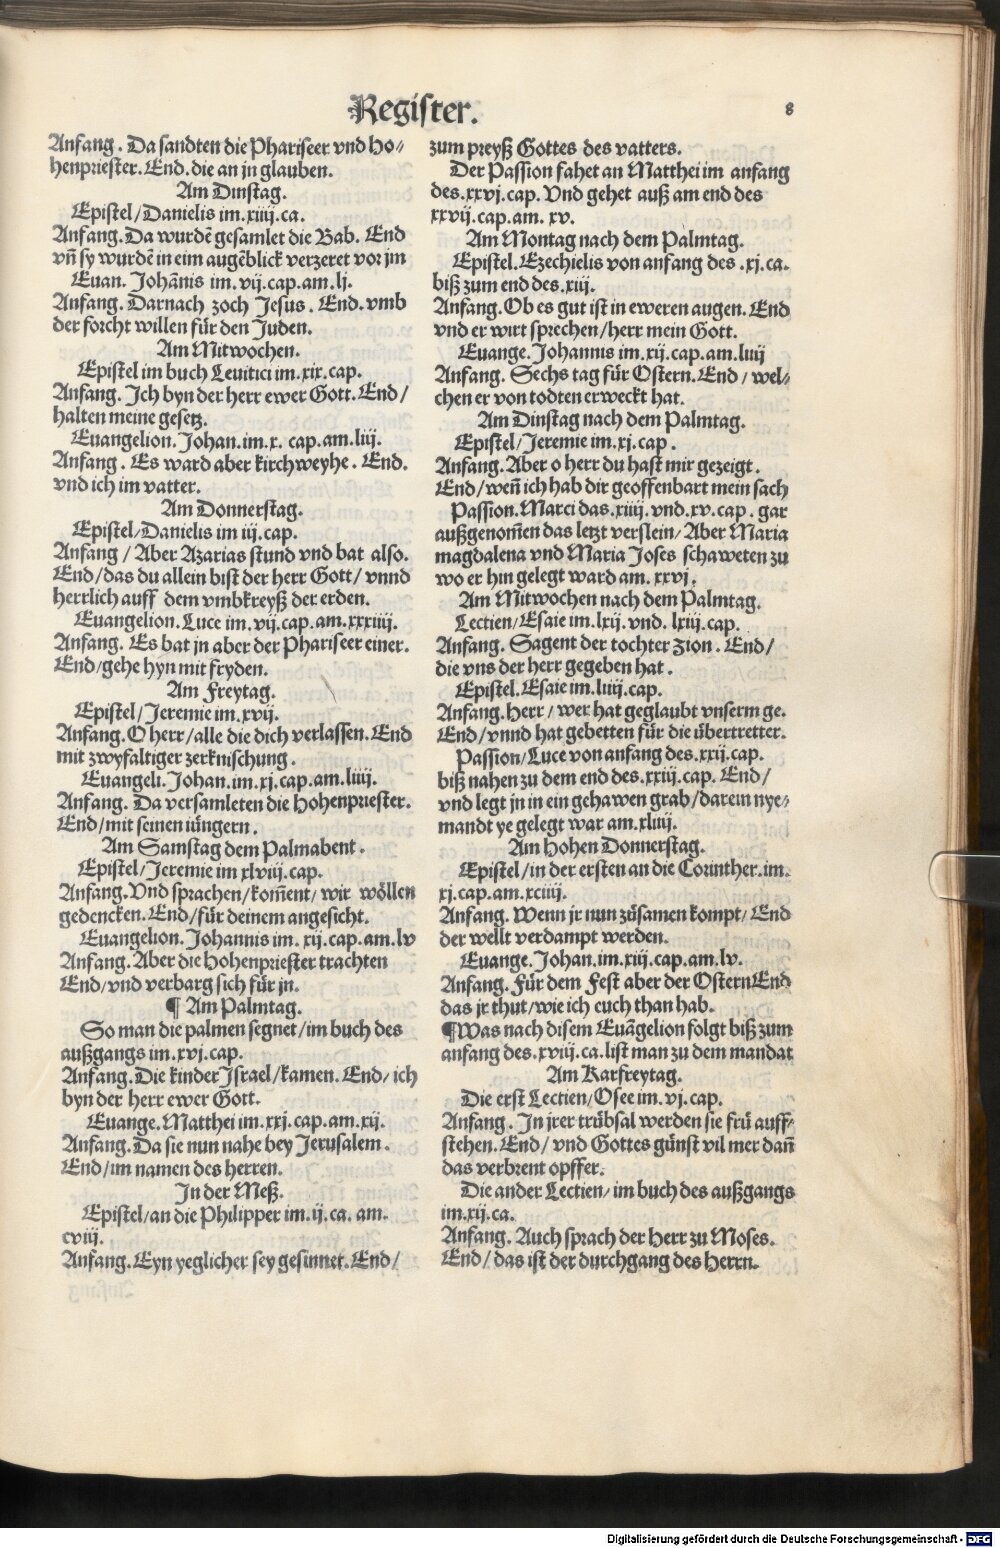 Register.
8
Anfang. Da sandten die Phariseer vnd ho-
henpriester. End. die an jn glauben.
Am Dinstag.
Epistel/Danielis im.xiiii.ca.
Anfang. Da wurdē gesamlet die Bab. End
vñ sy wurdē in eim augēblick verzeret vor jm
Euan. Johānis im.vij.cap.am.lj.
Anfang. Darnach zoch Jesus. End. vmb
der forcht willen für den Juden.
Am Mitwochen.
Epistel im buch Leuitici im.xix.cap.
Anfang. Jch byn der herr ewer Gott. End/
halten meine gesetz.
Euangelion. Johan.im.x. cap.am.liij.
Anfang. Es ward aber kirchweyhe. End.
vnd ich im vatter.
Am Donnerstag.
Epistel/Danielis im iij.cap.
Anfang / Aber Azarias stund vnd bat also.
End/das du allein bist der herr Gott/ vnnd
herrlich auff dem vmbkreyß der erden.
Euangelion. Luce im.vij.cap.am.xxxiiij.
Anfang. Es bat jn aber der Phariseer einer.
End/gehe hyn mit fryden.
Am Freytag.
Epistel/Jeremie im.xvij.
Anfang. O herr/alle die dich verlassen. End
mit zwyfaltiger zerknischung.
Euangeli. Johan.im.xj.cap.am.liiij.
Anfang. Da versamleten die hohenpriester.
End/mit seinen iüngern.
Am Samstag dem Palmabent.
Epistel/Jeremie im xlviij.cap.
Anfang. Vnd sprachen/kom̃ent/ wir wöllen
gedencken. End/für deinem angesicht.
Euangelion. Johannis im. xij.cap.am.lv
Anfang. Aber die hohenpriester trachten
End/vnd verbarg sich für jn.
¶ Am Palmtag.
So man die palmen segnet/im buch des
außgangs im.xvj.cap.
Anfang. Die kinder Jsrael/kamen. End/ ich
byn der herr ewer Gott.
Euange. Matthei im.xxj.cap.am.xij.
Anfang. Da sie nun nahe bey Jerusalem.
End/im namen des herren.
Jn der Meß.
Epistel/an die Philipper im.ij.ca. am.
cviii.
Anfang. Eyn yeglicher sey gesinnet. End/
zum preyß Gottes des vatters.
Der Passion fahet an Matthei im anfang
des.xxvj.cap. Vnd gehet auß am end des
xxvij.cap.am. xv.
Am Montag nach dem Palmtag.
Epistel. Ezechielis von anfang des.xj.ca.
biß zum end des.xiij.
Anfang. Ob es gut ist in eweren augen. End
vnd er wirt sprechen/herr mein Gott.
Euange. Johannis im.xij.cap.am.liiij
Anfang. Sechs tag für Ostern. End/ wel-
chen er von todten erweckt hat.
Am Dinstag nach dem Palmtag.
Epistel/Jeremie im.xj.cap.
Anfang. Aber o herr du hast mir gezeigt.
End/wen̄ ich hab dir geoffenbart mein sach
Passion. Marci das.xiiij.vnd.xv.cap. gar
außgenom̃en das letzt verslein/ Aber Maria
magdalena vnd Maria Joses schaweten zu
wo er hin gelegt ward am. xxvj.
Am Mitwochen nach dem Palmtag.
Lectien/Esaie im.lxij.vnd. lxiij.cap.
Anfang. Sagent der tochter Zion. End/
die vns der herr gegeben hat.
Epistel. Esaie im.liiij.cap.
Anfang. Herr/ wer hat geglaubt vnserm ge.
End/vnnd hat gebetten für die übertretter.
Passion/Luce von anfang des.xxij.cap.
biß nahen zu dem end des.xxiij.cap. End/
vnd legt jn in ein gehawen grab/darein nye-
mandt ye gelegt war am.xliiij.
Am Hohen Donnerstag.
Epistel/in der ersten an die Corinther.im.
xj.cap.am.xciiij.
Anfang. Wenn jr nun zůsamen kompt/ End
der wellt verdampt werden.
Euange. Johan.im.xiij.cap.am.lv.
Anfang. Für dem Fest aber der Ostern End
das jr thut/wie ich euch than hab.
¶Was nach disem Euāgelion folgt biß zum
anfang des.xviij.ca.list man zu dem mandat
Am Karfreytag.
Die erst Lectien/Osee im.vj.cap.
Anfang. Jn jrer trübsal werden sie frü auff-
stehen. End/ vnd Gottes günst vil mer dañ
das verbrent opffer.
Die ander Lectien/ im buch des außgangs
im.xij.ca.
Anfang. Auch sprach der herr zu Moses.
End/ das ist der durchgang des herrn.
Digitalisierung gefördert durch die Deutsche Forschungsgemeinschaft - DFG